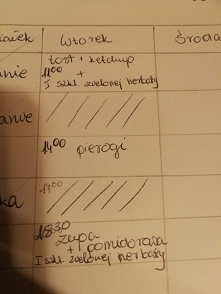 Wtorek
Środa
tost + ketchup
11⁰⁰ +
1 szkl. zielonej herbaty
anie
14⁰⁰ pierogi
17⁰⁰
18³⁰
zupa
+ pomidorowa
1 szkl. zielonej herbaty